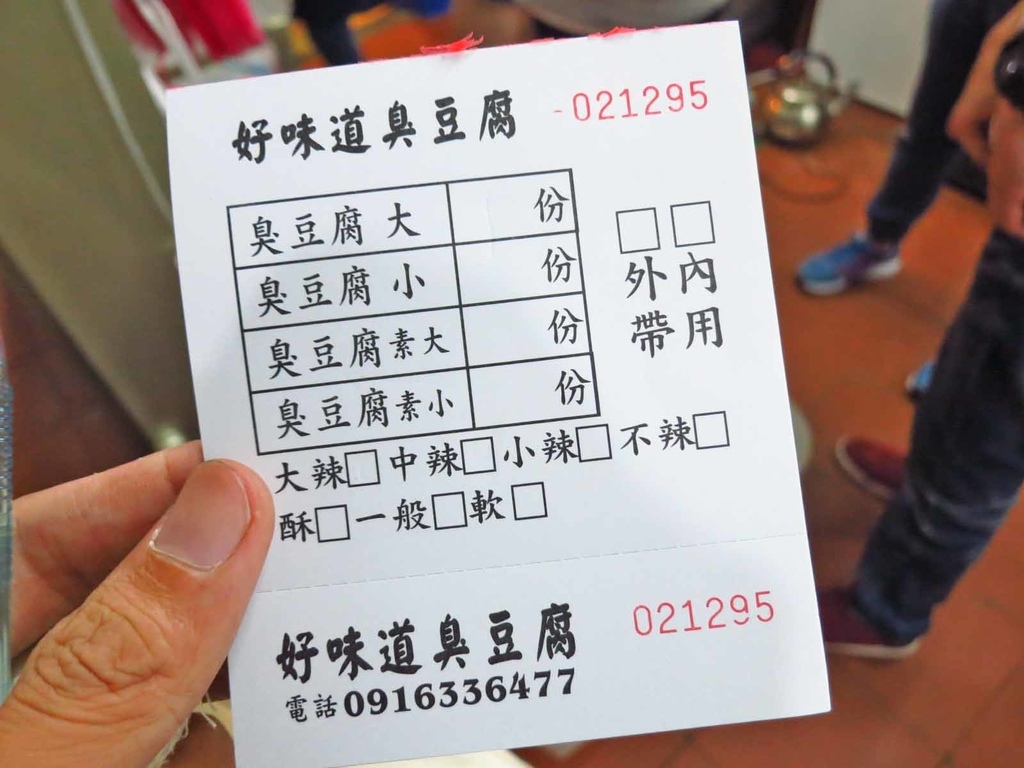 好味道臭豆腐 -021295
臭豆腐 大 份
臭豆腐 小 份
臭豆腐素大 份
臭豆腐素小 份
□ □
外帶 內用
大辣□中辣□小辣□不辣□
酥□一般□軟□
好味道臭豆腐 021295
電話0916336477